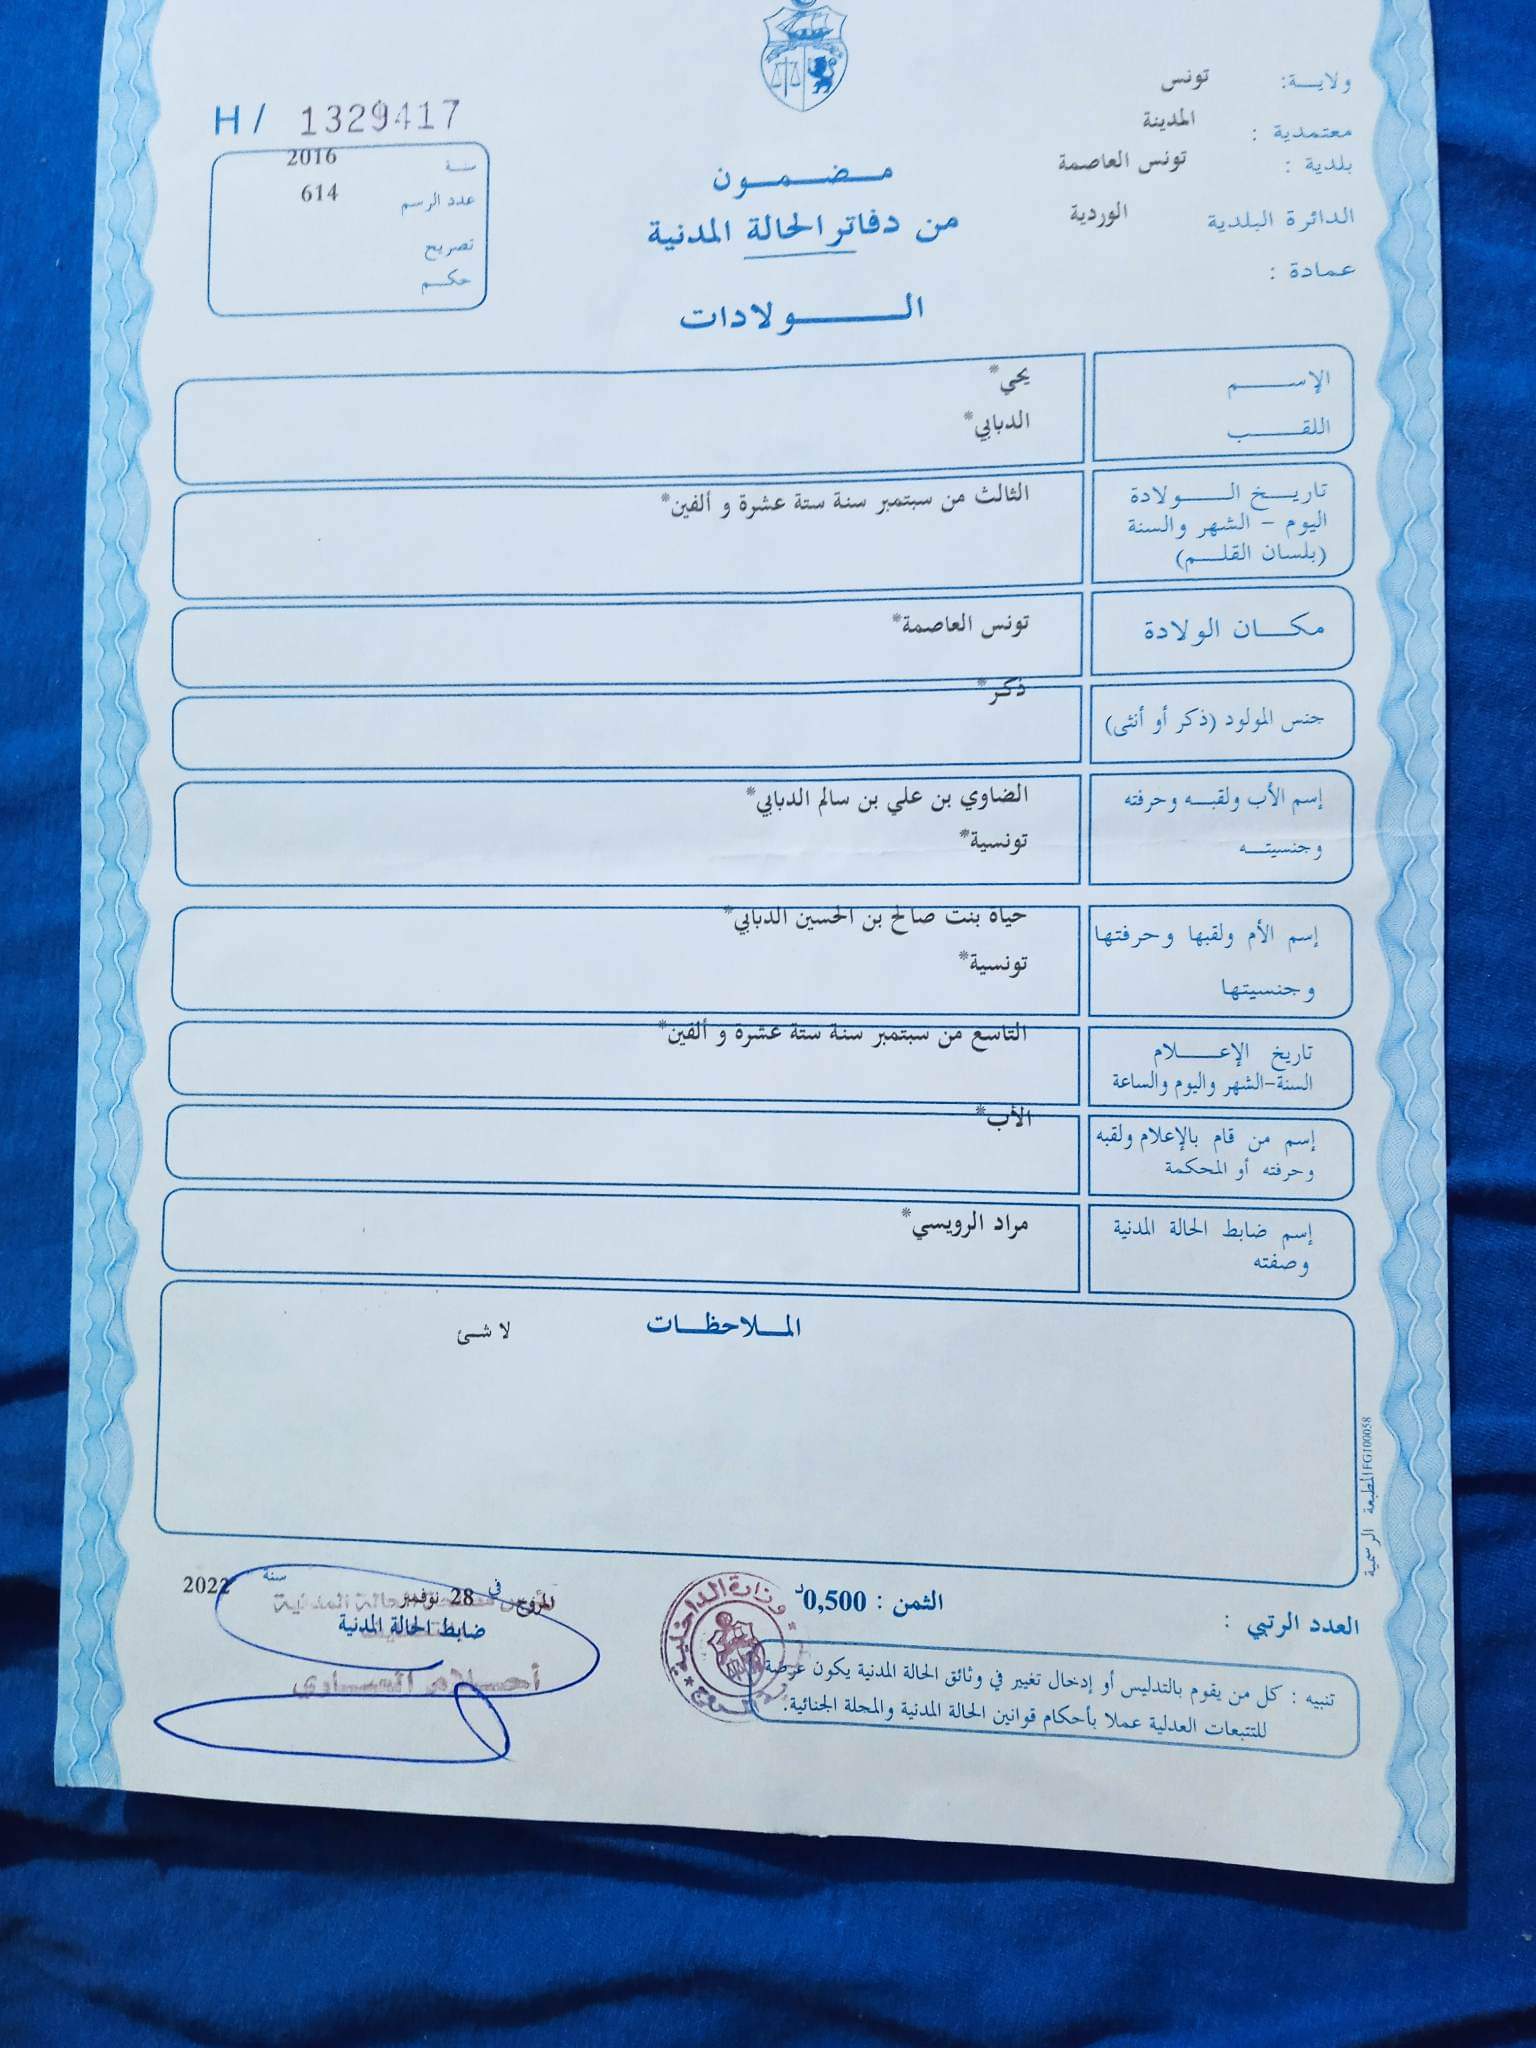 ولاية: تونس
معتمدية : المدينة
بلدية : تونس العاصمة
الدائرة البلدية الوردية
عمادة :
H / 1329417
سنة 2016
عدد الرسم 614
تصريح
حكم
مضمون
من دفاتر الحالة المدنية
الولادات
الإسم يحي*
اللقب الدبابي*
تاريخ الولادة
اليوم - الشهر والسنة
(بلسان القلم)
الثالث من سبتمبر سنة ستة عشرة و ألفين*
مكان الولادة تونس العاصمة*
جنس المولود (ذكر أو أنثى) ذكر*
إسم الأب ولقبه وحرفته الضاوي بن علي بن سالم الدبابي*
وجنسيته تونسية*
إسم الأم ولقبها وحرفتها حياة بنت صالح بن الحسين الدبابي*
وجنسيتها تونسية*
تاريخ الإعلام التاسع من سبتمبر سنة ستة عشرة و ألفين*
السنة-الشهر واليوم والساعة
إسم من قام بالإعلام ولقبه الأب*
وحرفته أو المحكمة
إسم ضابط الحالة المدنية مراد الرويسي*
وصفته
الملاحظات
لا شئ
المطبعة الرسمية FG100058
العدد الرتبي :
الثمن : 0,500د
المروج في 28 نوفمبر سنة 2022
ضابط الحالة المدنية
وزارة الداخلية
تنبيه : كل من يقوم بالتدليس أو إدخال تغيير في وثائق الحالة المدنية يكون عرضة
للتتبعات العدلية عملا بأحكام قوانين الحالة المدنية والمجلة الجنائية.